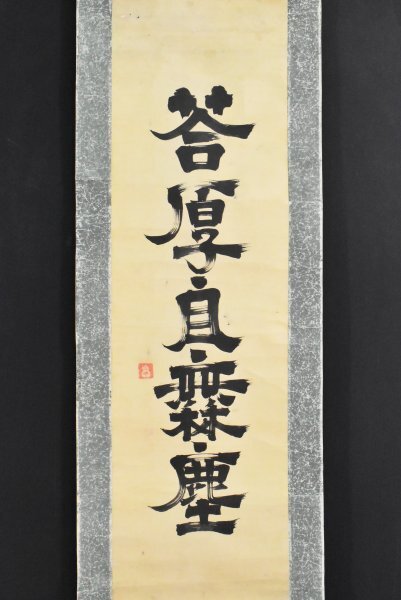 答厚自無塵